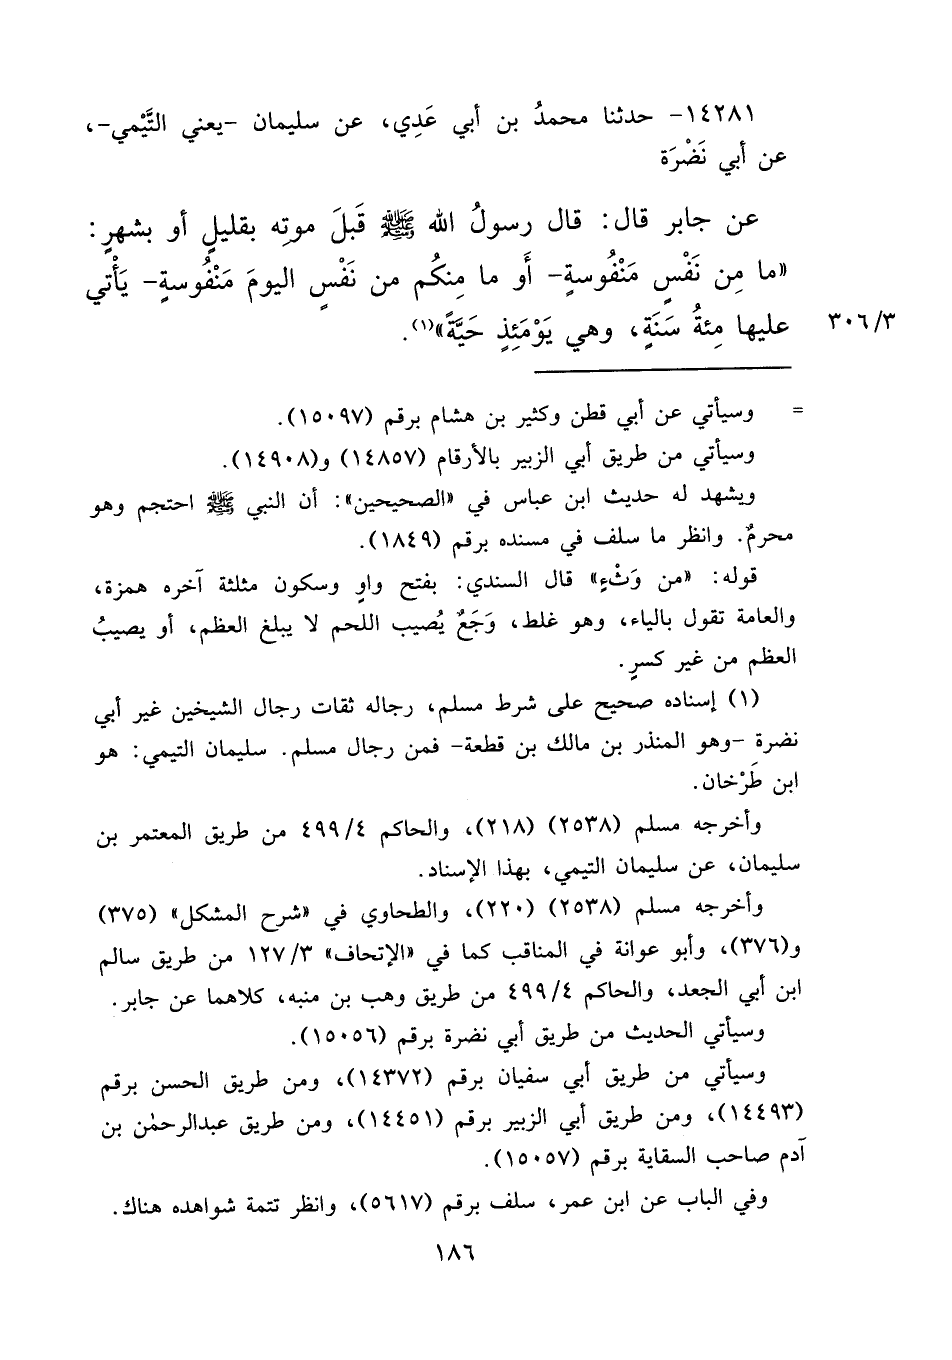 ١٤٢٨١- حدثنا محمدُ بن أبي عَدِي، عن سليمان -يعني التَّيْمي-،
عن أبي نَضْرَة
عن جابر قال: قال رسولُ الله ﷺ قَبلَ موتِه بقليلٍ أو بشهرٍ:
«ما مِن نَفْسٍ مَنْفُوسةٍ- أَو ما مِنكُم من نَفْسٍ اليومَ مَنْفُوسةٍ- يَأْتي
عليها مِئةُ سَنَةٍ، وهي يَوْمَئِذٍ حَيَّةٌ»(١).
٣٠٦/٣
= وسيأتي عن أبي قطن وكثير بن هشام برقم (١٥٠٩٧).
وسيأتي من طريق أبي الزبير بالأرقام (١٤٨٥٧) و(١٤٩٠٨).
ويشهد له حديث ابن عباس في «الصحيحين»: أن النبي ﷺ احتجم وهو
محرمٌ. وانظر ما سلف في مسنده برقم (١٨٤٩).
قوله: «من وَثْءٍ» قال السندي: بفتح واوٍ وسكون مثلثة آخره همزة،
والعامة تقول بالياء، وهو غلط، وَجَعٌ يُصيب اللحم لا يبلغ العظم، أو يصيبُ
العظم من غير كسرٍ.
(١) إسناده صحيح على شرط مسلم، رجاله ثقات رجال الشيخين غير أبي
نضرة -وهو المنذر بن مالك بن قطعة- فمن رجال مسلم. سليمان التيمي: هو
ابن طَرْخان.
وأخرجه مسلم (٢٥٣٨) (٢١٨)، والحاكم ٤٩٩/٤ من طريق المعتمر بن
سليمان، عن سليمان التيمي، بهذا الإسناد.
وأخرجه مسلم (٢٥٣٨) (٢٢٠)، والطحاوي في «شرح المشكل» (٣٧٥)
و(٣٧٦)، وأبو عوانة في المناقب كما في «الإتحاف» ١٢٧/٣ من طريق سالم
ابن أبي الجعد، والحاكم ٤٩٩/٤ من طريق وهب بن منبه، كلاهما عن جابر.
وسيأتي الحديث من طريق أبي نضرة برقم (١٥٠٥٦).
وسيأتي من طريق أبي سفيان برقم (١٤٣٧٢)، ومن طريق الحسن برقم
(١٤٤٩٣)، ومن طريق أبي الزبير برقم (١٤٤٥١)، ومن طريق عبدالرحمٰن بن
آدم صاحب السقاية برقم (١٥٠٥٧).
وفي الباب عن ابن عمر، سلف برقم (٥٦١٧)، وانظر تتمة شواهده هناك.
١٨٦